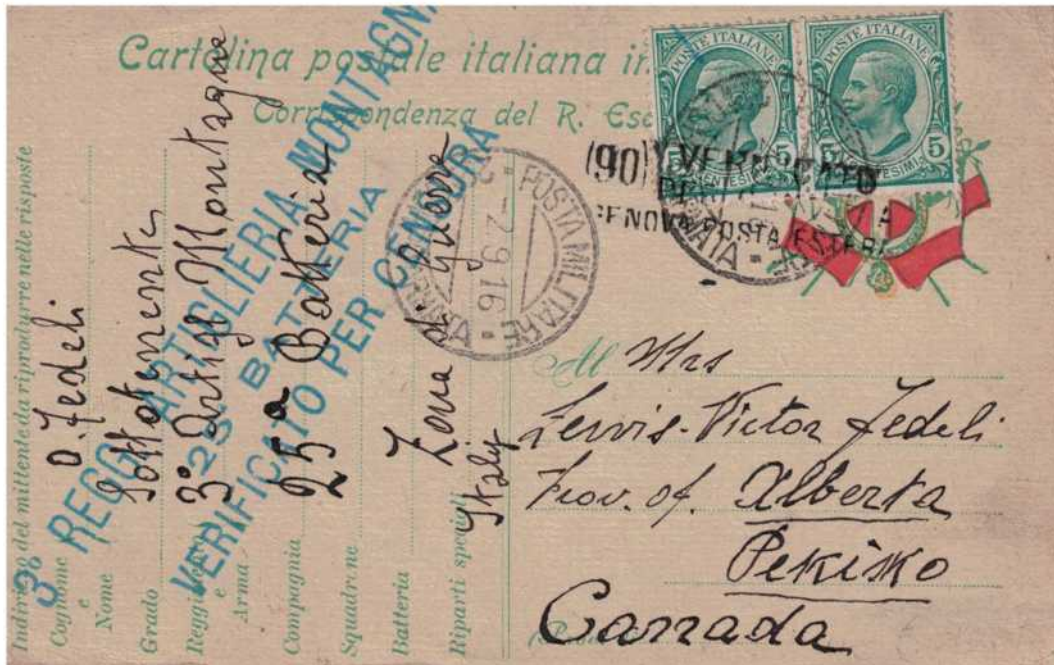 Cartolina postale italiana in
Corrispondenza del R. Ese
POSTE ITALIANE
5 CENTESIMI 5
POSTE ITALIANE
CENTESIMI 5
(90) VERIFICATO
GENOVA POSTA ESTERA
POSTA MILITARE
-2.9.16
3° REGG. ARTIGLIERIA MONTAGNA
25a BATTERIA
VERIFICATO PER CENSURA
Indirizzo del mittente da riprodurre nelle risposte
Cognome e Nome
O. Fedeli
Grado
Sottotenente
Regg
e
Arma
3° Artigl Montagna
Compagnia
25a Batteria
Squadrone
Batteria
Zona di Guerra
Riparti speciali
Italy
Al Mrs
Lewis-Victor Fedeli
Prov. of Alberta
Pekisko
Canada